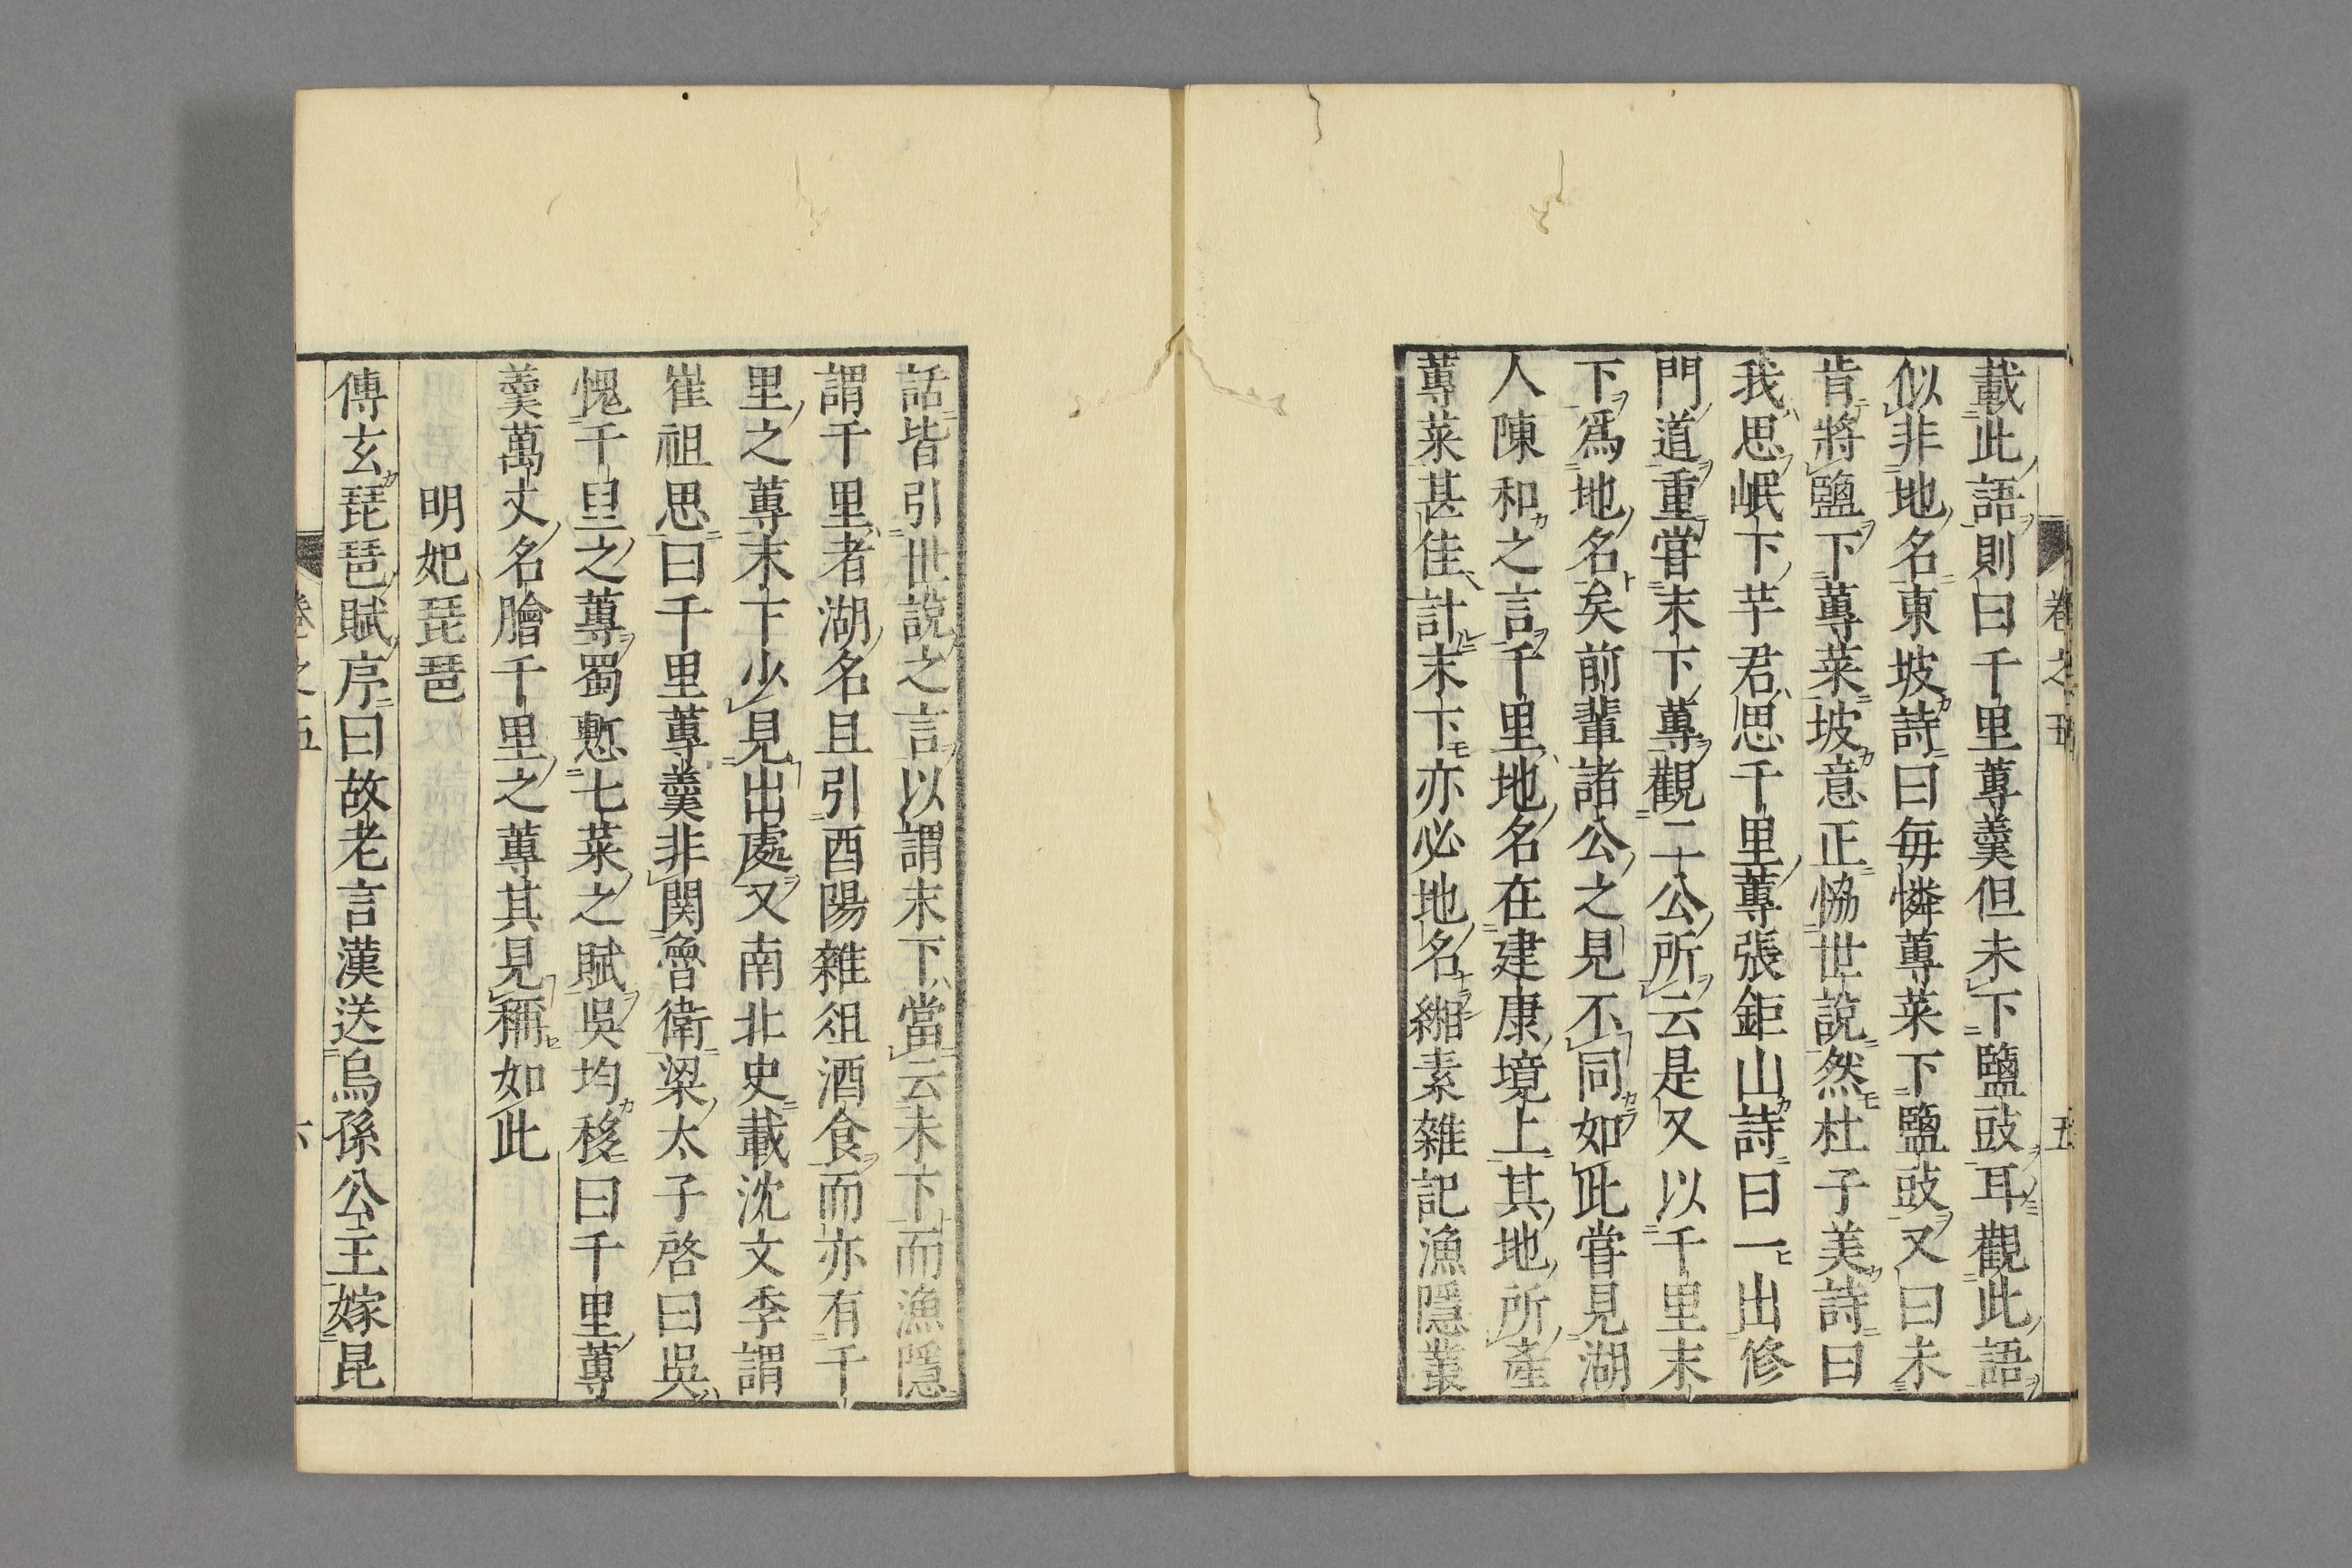 卷之五 五
載此語則曰千里蓴羹但未下鹽豉耳觀此語
似非地名東坡詩曰毎憐蓴菜下鹽豉又曰未
肯將鹽下蓴菜坡意正恊世說然杜子美詩曰
我思岷下芋君思千里蓴張鉅山詩曰一出修
門道重嘗末下蓴觀二公所云是又以千里末
下爲地名矣前輩諸公之見不同如此嘗見湖
人陳和之言千里地名在建康境上其地所產
蓴菜甚佳計末下亦必地名緗素雜記漁隱叢
話皆引世說之言以謂末下當云未下而漁隱
謂千里者湖名且引酉陽雜俎酒食而亦有千
里之蓴末下少見出處又南北史載沈文季謂
崔祖思曰千里蓴羹非関魯衛梁太子啓曰吳
愧千里之蓴蜀慙七菜之賦吳均移曰千里蓴
羹萬丈名膾千里之蓴其見稱如此
明妃琵琶
傅玄琵琶賦序曰故老言漢送烏孫公主嫁昆
卷之五 六